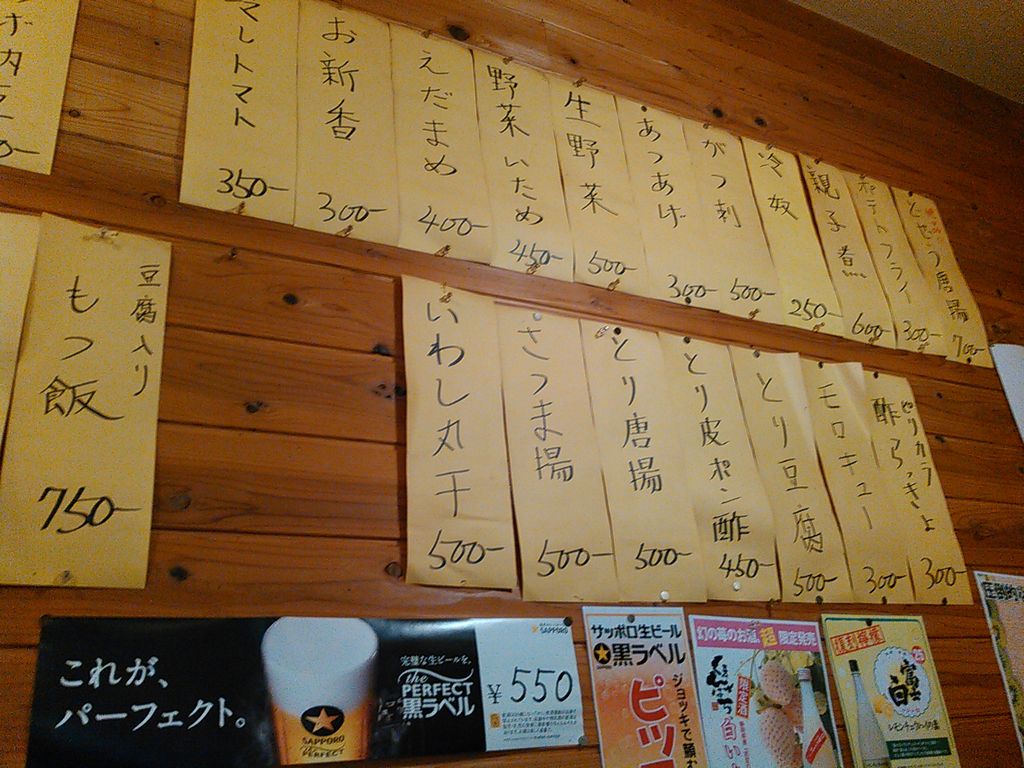 マトマト
350-
お新香
300-
えだまめ
400-
野菜いため
450-
生野菜
500-
あつあげ
300-
がつ刺
500-
冷奴
250-
親子煮
600-
ポテトフライ
300-
唐揚
700-
豆腐入り
もつ飯
750-
いわし丸干
500-
さつま揚
500-
とり唐揚
500-
とり皮ポン酢
450-
とり豆腐
500-
モロキュー
300-
ピリカラ
酢らっきょ
300-
これが、
パーフェクト。
SAPPORO
完璧な生ビールを。
the
PERFECT
黒ラベル
SAPPORO
¥550
サッポロ生ビール
黒ラベル
ジョッキで願む
ピッ
幻の苺のお酒、超限定発売
白い
富士
白